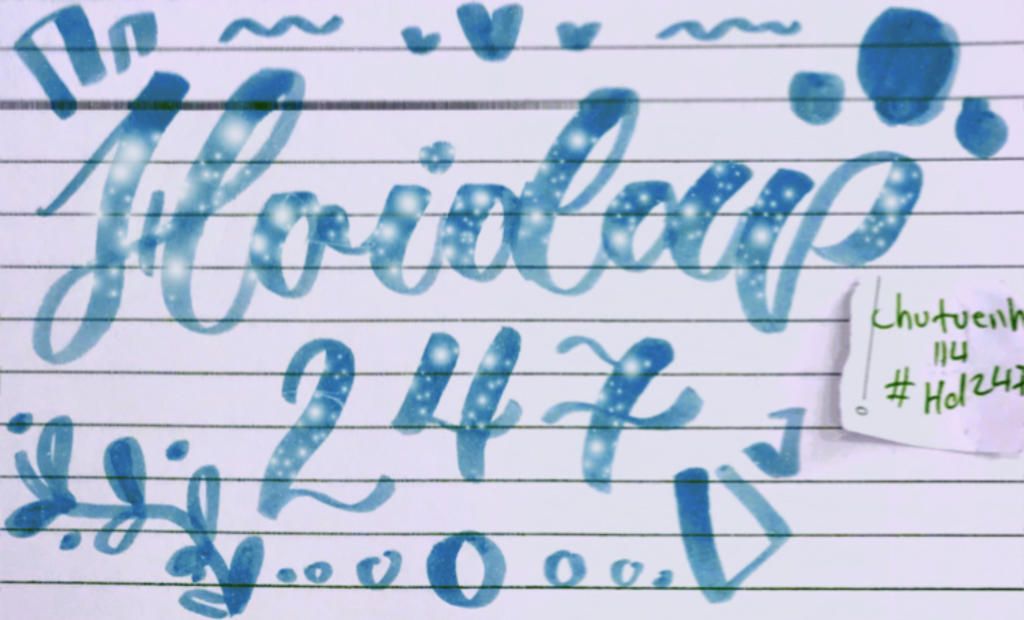 Hoidap
247
chutuenh
114
#Hd247